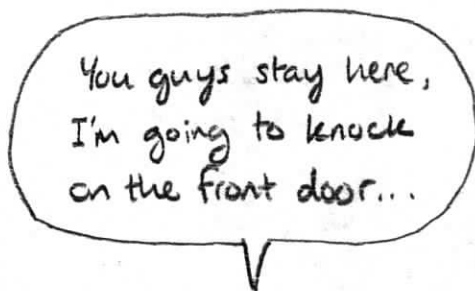 You guys stay here,
I'm going to knock
on the front door...